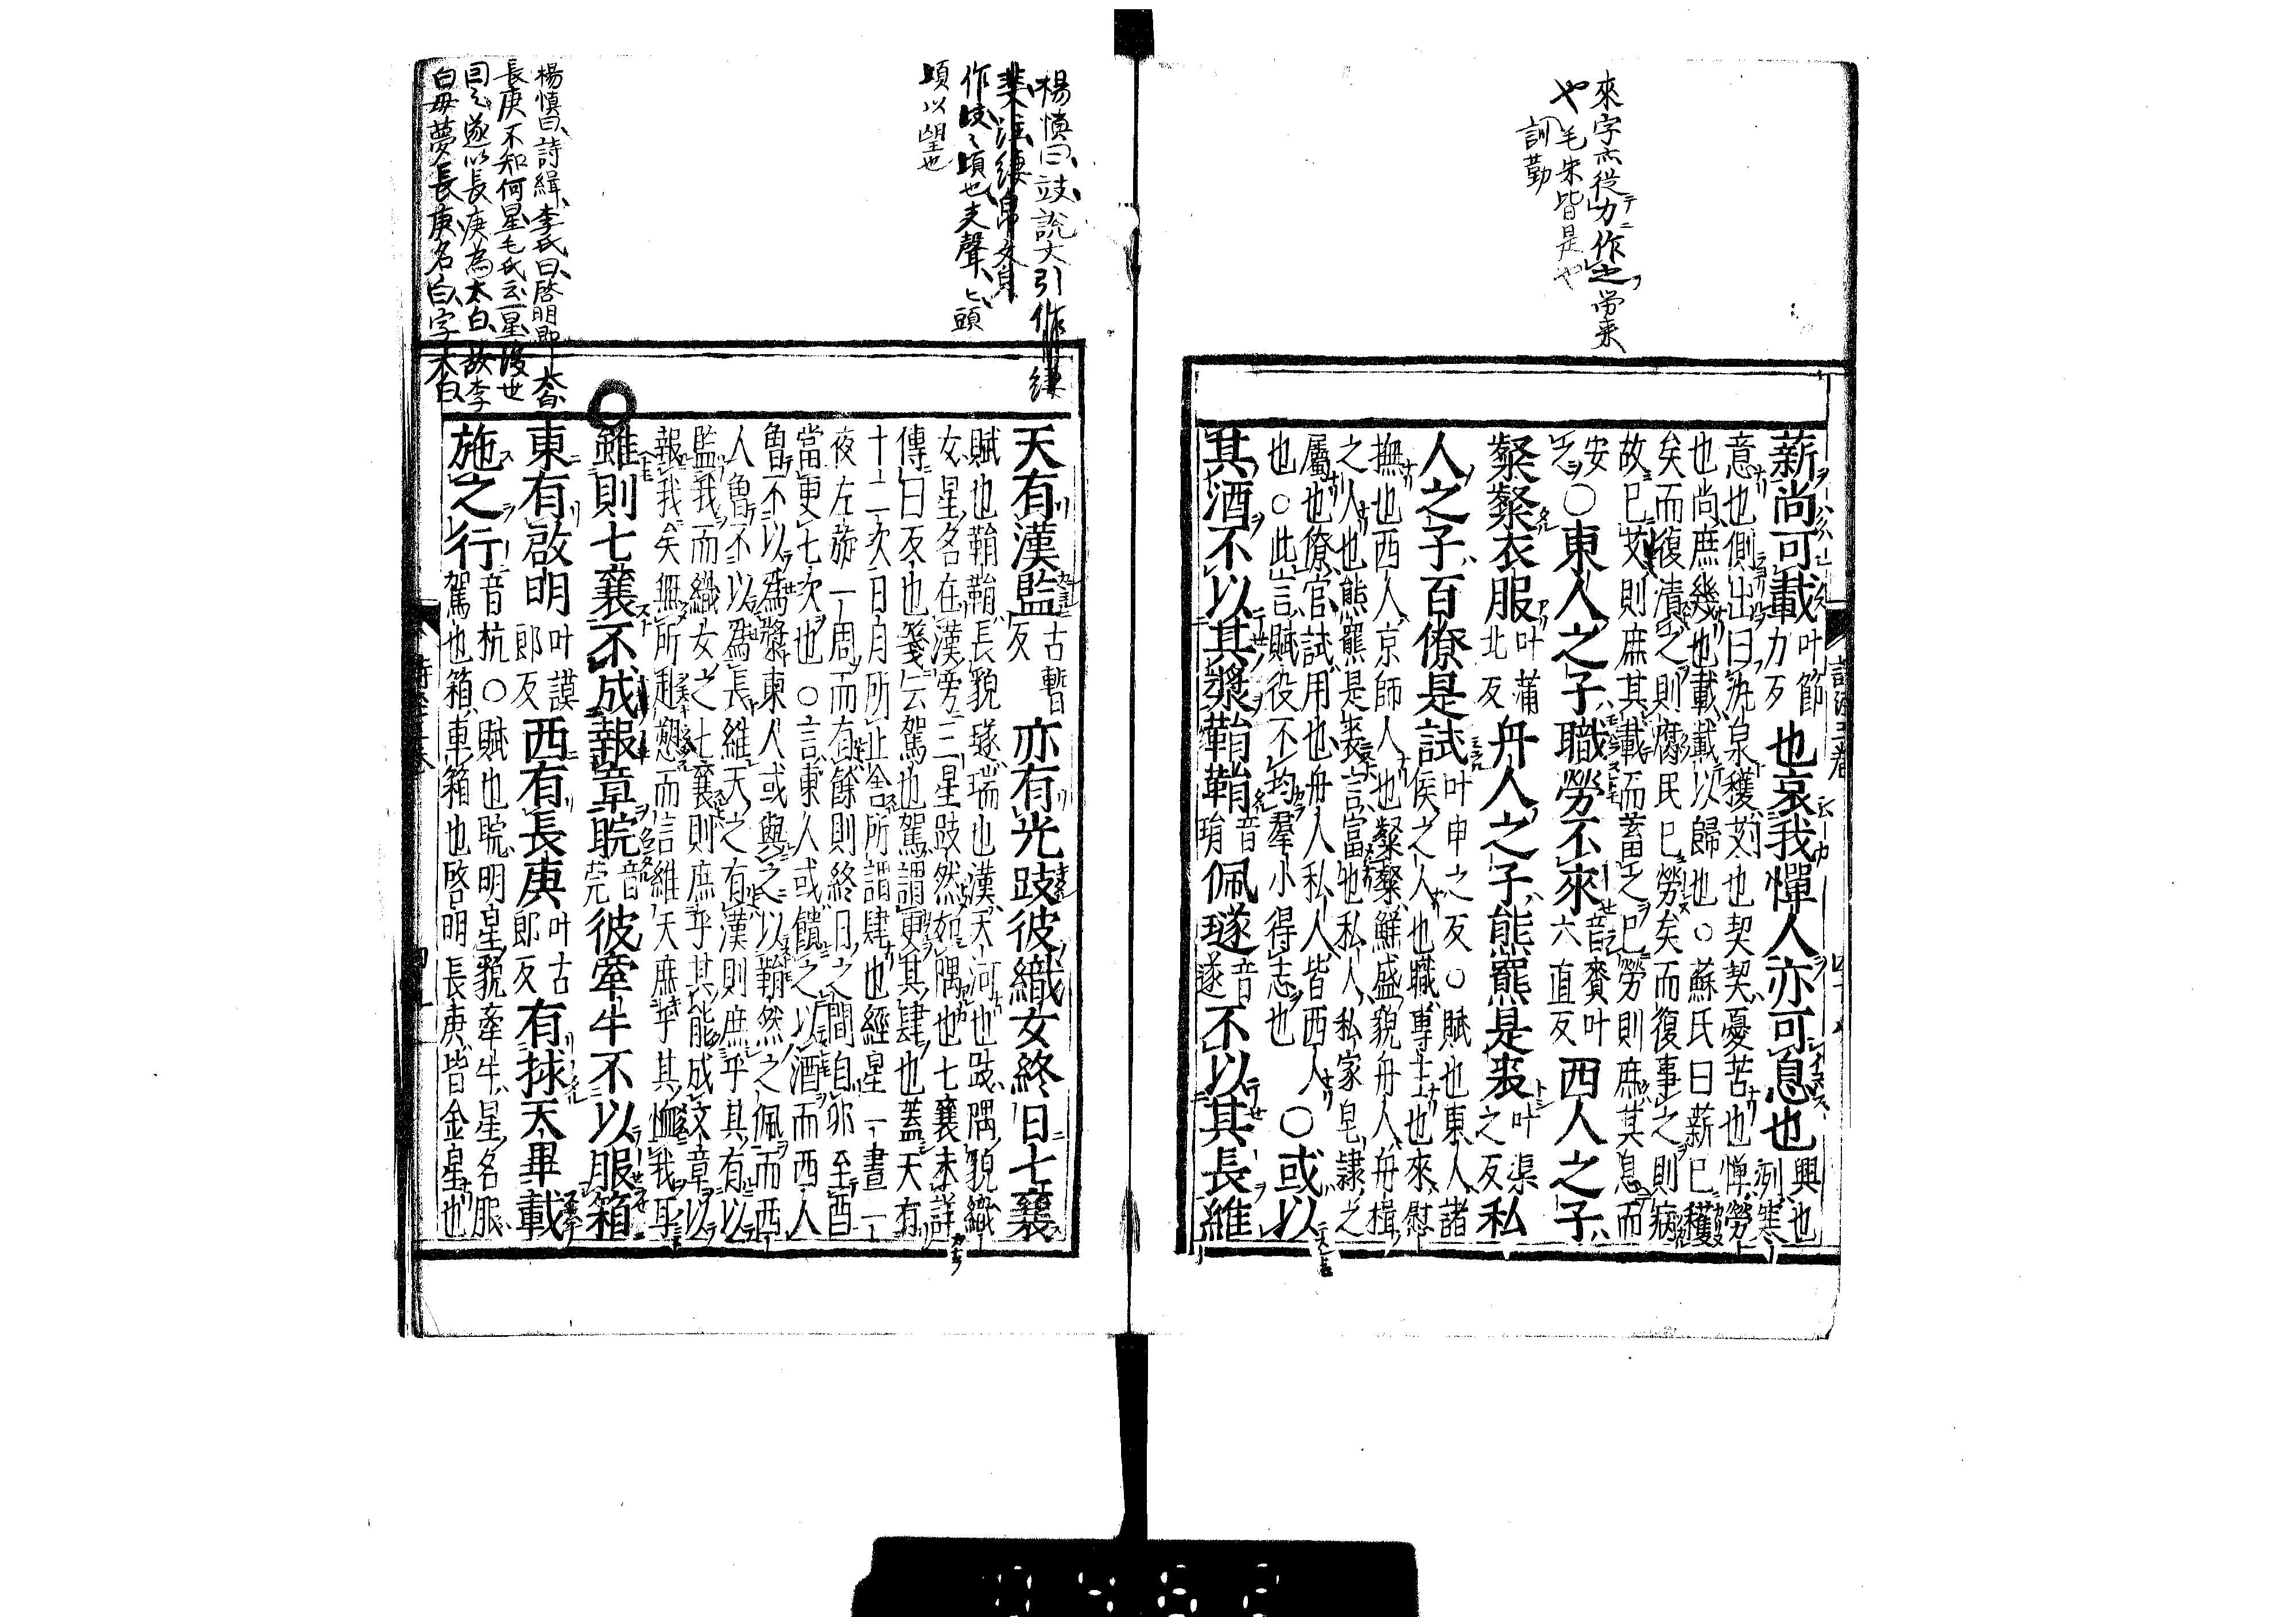 來字亦從力作之勞來
や毛朱皆是や
訓勤
薪尚可載叶節力反也哀我憚人亦可息也興也
意也側出曰氿泉穫艾也契契憂苦也憚勞
也尚庶幾也載載以歸也○蘇氏曰薪已穫
矣而復漬之則腐民已勞矣而復事之則病
故已艾則庶其載而蓄之已勞則庶其息而
安○東人之子職勞不來音賚叶六直反西人之子
粲粲衣服叶蒲北反舟人之子熊羆是裘叶渠之反私
人之子百僚是試叶申之反○賦也東人諸侯之人也職專主也來慰
撫也西人京師人也粲粲鮮盛貌舟人舟楫
之人也熊羆是裘言富也私人私家皂隸之
屬也僚官試用也舟人私人皆西人
也○此言賦役不均羣小得志也○或以
其酒不以其漿鞙鞙音琄佩璲音遂不以其長維
楊慎曰跂說文引作𦀗
作跂頃也支聲匕頭
頃以望也
天有漢監古暫反亦有光跂彼織女終日七襄
賦也鞙鞙長貌璲瑞也漢天河也跂隅貌織
女星名在漢旁三星跂然如隅也七襄未詳
傳曰反也箋云駕也駕謂更其肆也蓋天有
十二次日月所止舍所謂肆也經星一晝一
夜左旋一周而有餘則終日之間自卯至酉
當更七次也○言東人或饋之以酒而西人
曾不以為漿東人或與之以鞙然之佩而西
人曾不以為長維天之有漢則庶乎其有以
監我而織女之七襄則庶乎其能成文章以
報我矣無所赴愬而言維天庶乎其恤我耳
雖則七襄不成報章睆音莞彼牽牛不以服箱
東有啟明叶謨郎反西有長庚叶古郎反有捄天畢載
施之行音杭○賦也睆明星貌牽牛星名服
駕也箱車箱也啓明長庚皆金星也
楊慎曰詩緝李氏曰啓明即太白
長庚不知何星毛氏云一星後世
因之遂以長庚為太白故李
白母夢長庚名白字太白